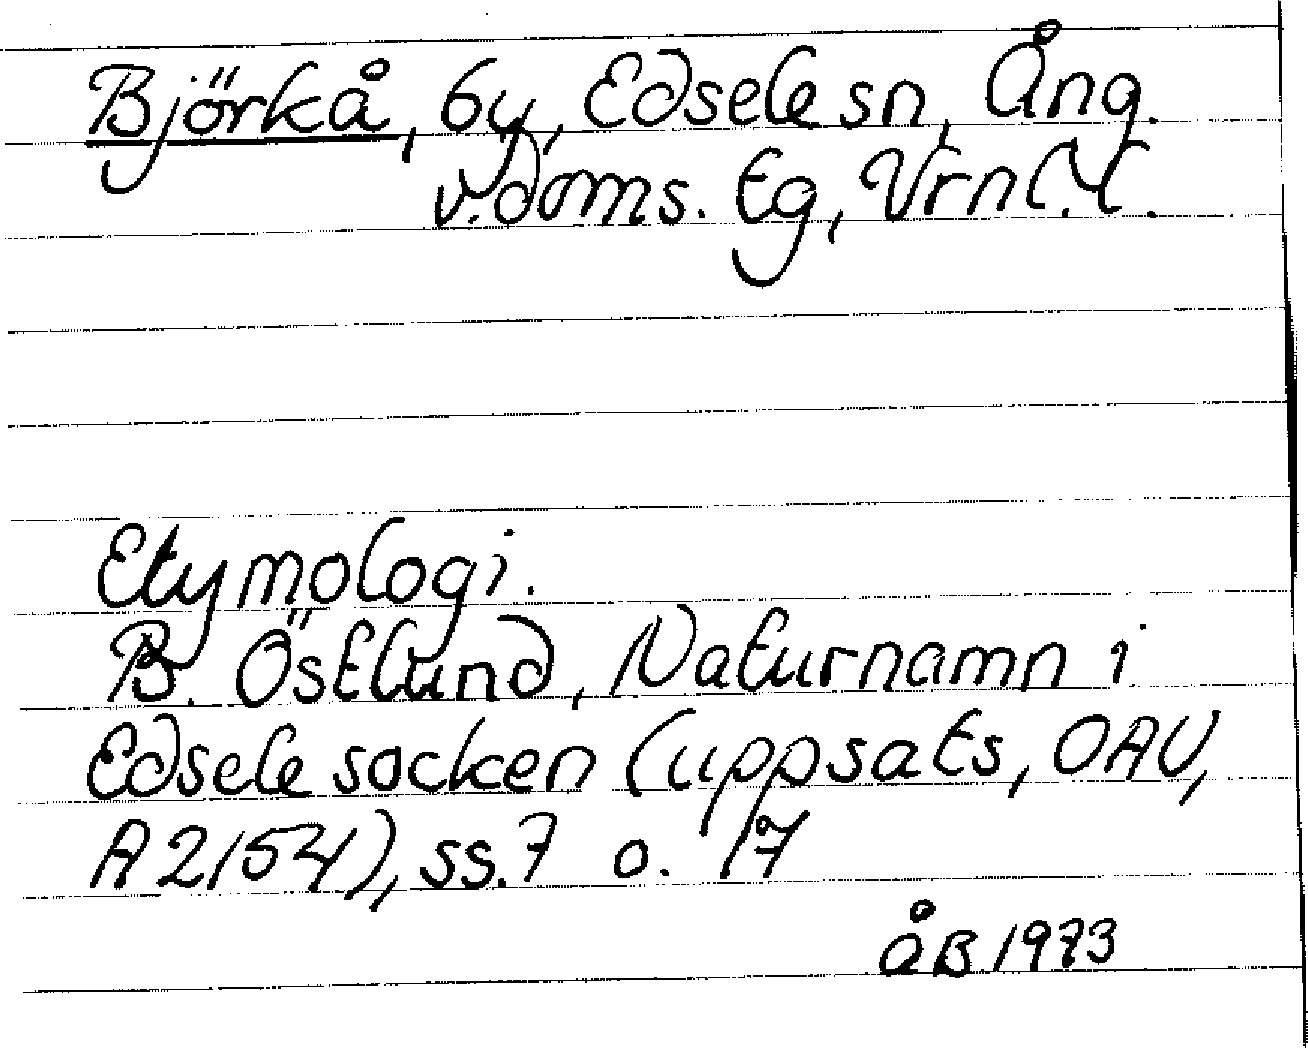 Björkå, by, Edsele sn, Ång.
v. doms. tg, Vrnl. l.
Etymologi.
B. Östlund, Naturnamn i
Edsele socken (uppsats, OAU,
A 2154), ss. 7 o. 17
åB 1973